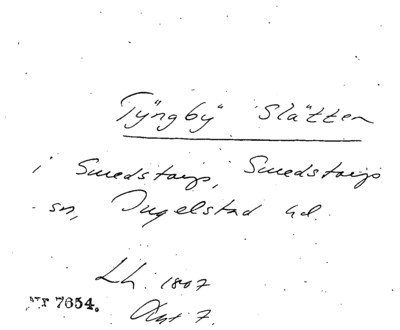 Tÿngbÿ Slätten
i Smedstorp, Smedstorps
sn, Ingelstad hd.
Lh. 1807
Nr 7654. Akt 7.